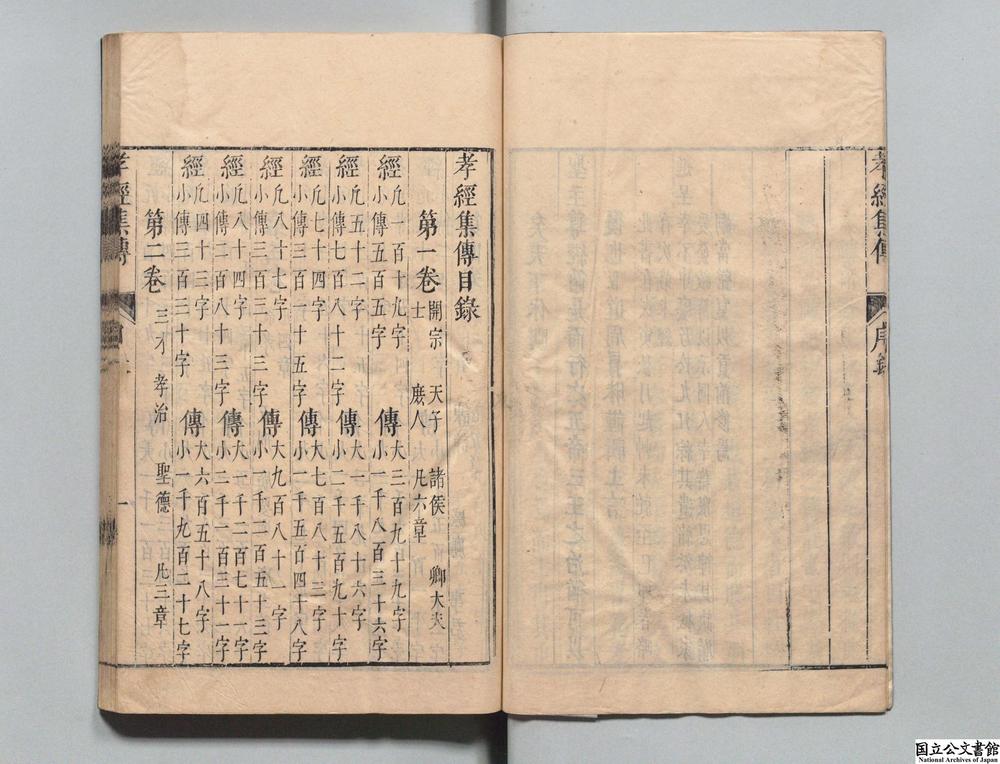 孝經集傳
孝經集傳目錄
第一卷 開宗 天子 諸侯 卿大夫
士 庶人 凡六章
經 凡一百十九字
小傳五百五字
傳 大三百九十九字
小一千八百三十六字
經 凡五十二字
小傳七百八十二字
傳 大一千八十六字
小二千五百九十字
經 凡七十四字
小傳三百一十五字
傳 大七百八十三字
小一千五百四十八字
經 凡八十七字
小傳三百三十三字
傳 大九百八十一字
小一千二百五十三字
經 凡八十四字
小傳二百八十三字
傳 大一千二百七十一字
小二千一百三十一字
經 凡四十三字
小傳三百三十字
傳 大六百五十八字
小一千九百二十七字
第二卷 三才 孝治 聖德 凡三章
孝經集傳 一
国立公文書館
National Archives of Japan